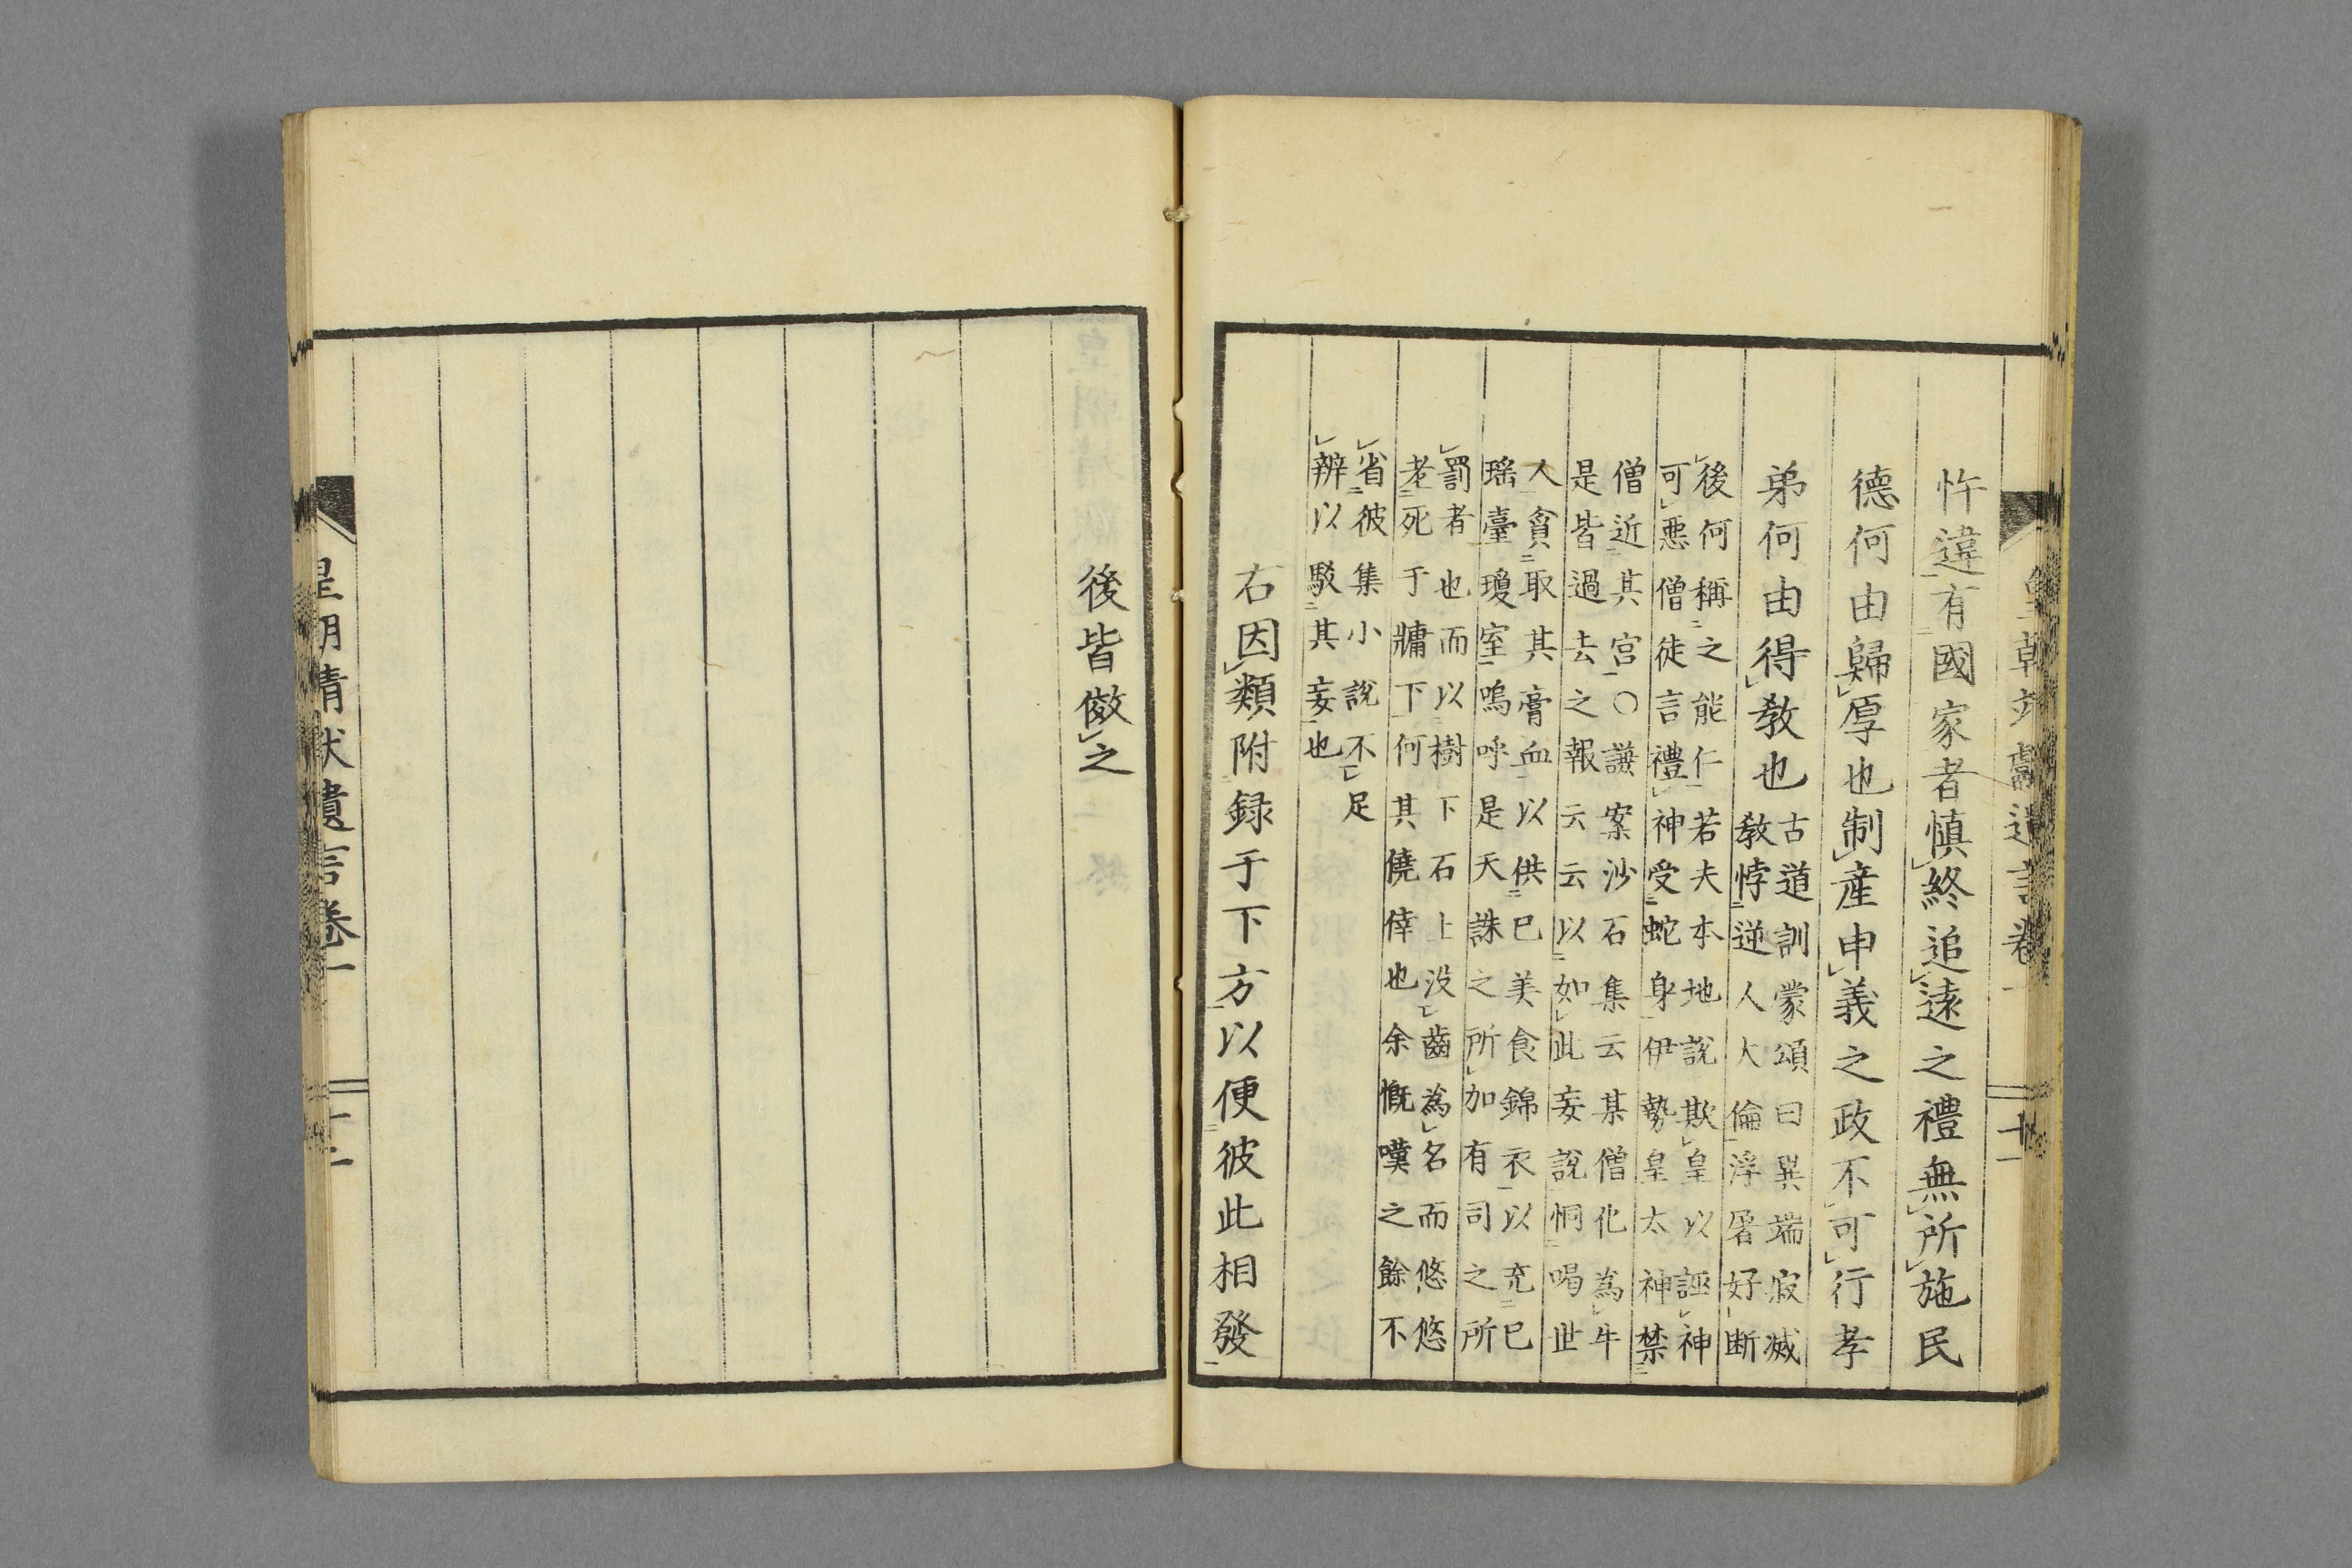 忤違有國家者愼終追遠之禮無所施民
德何由歸厚也制產申義之政不可行孝
弟何由得敎也
古道訓蒙頌曰異端寂滅
敎悖逆人大倫浮屠好断
後何稱之能仁若夫本地說欺皇以誣神
可惡僧徒言禮神受蛇身伊勢皇太神禁
僧近其宮〇謙案沙石集云某僧化為牛
是皆過去之報云云以如此妄說恫喝世
人貪取其膏血以供已美食錦衣以充已
瑤臺瓊室嗚呼是天誅之所加有司之所
罰者也而以樹下石上没齒為名而悠悠
老死于牖下何其僥倖也余慨嘆之餘不
省彼集小說不足
辨以駁其妄也
右因類附録于下方以便彼此相發
後皆倣之
皇朝靖献遺言卷一
十一